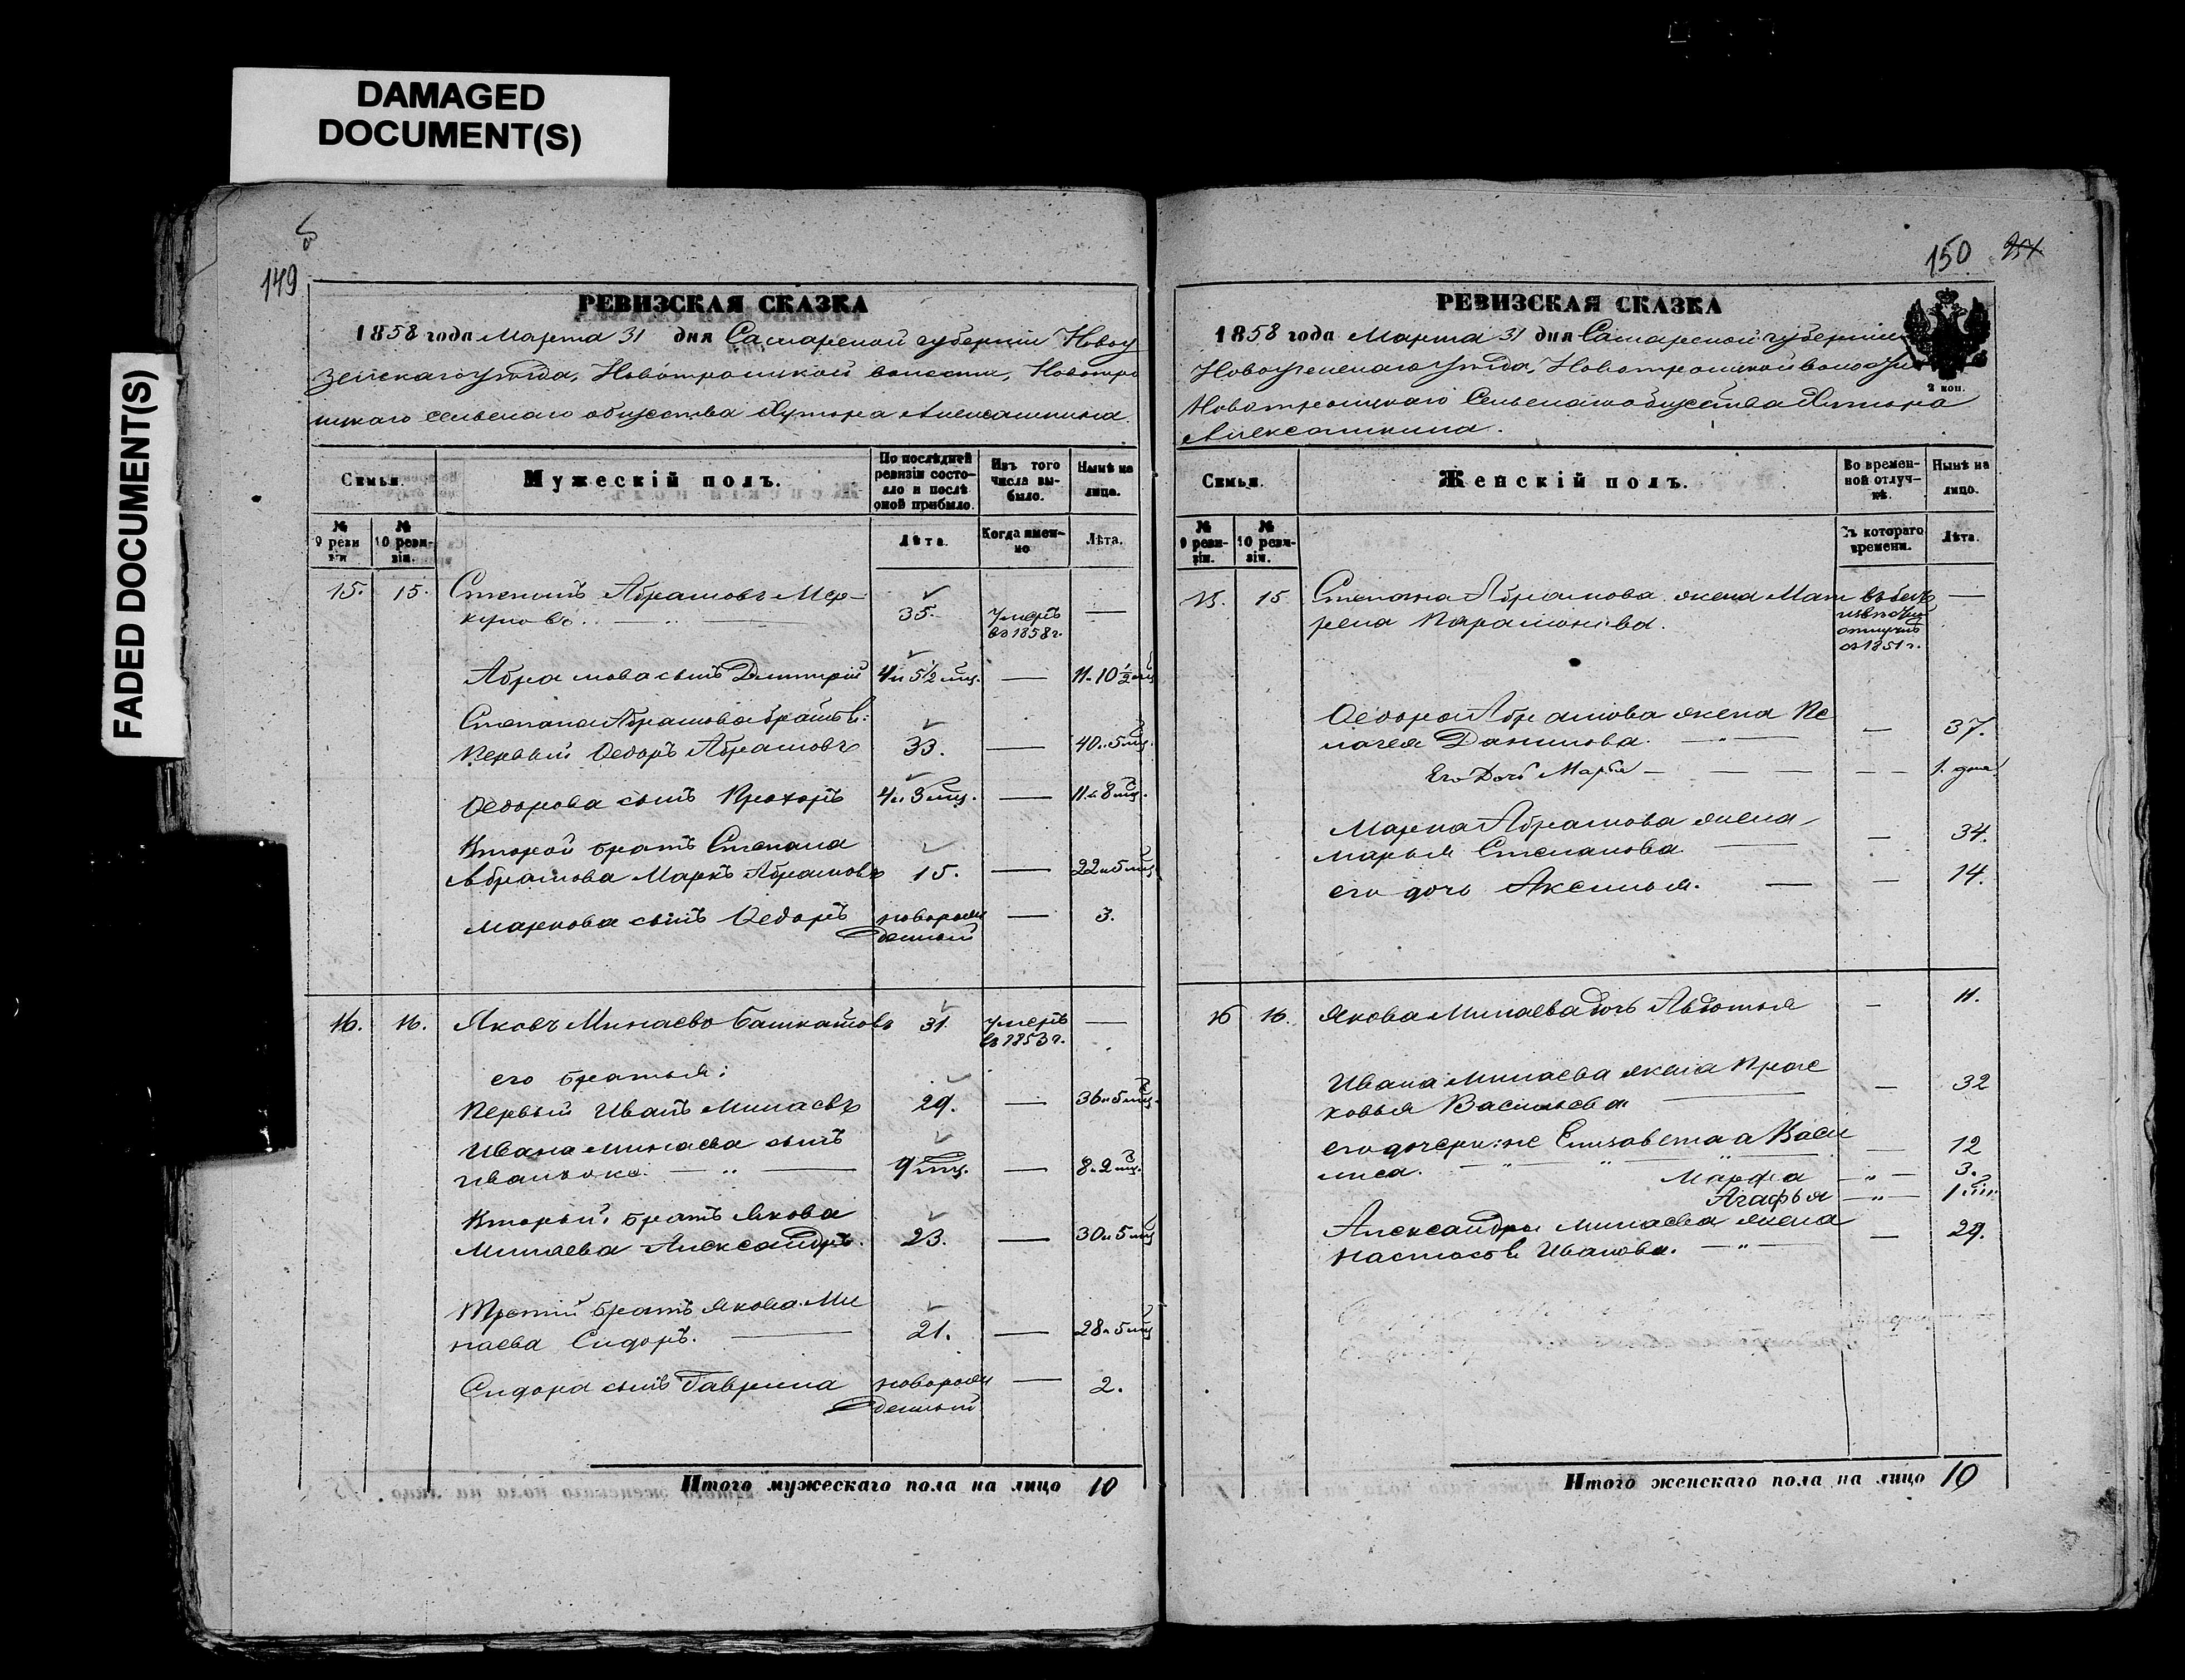 DAMAGED
DOCUMENT(S)
FADED DOCUMENT(S)
149
РЕВИЗСКАЯ СКАЗКА
1858 года Марта 31 дня Самарской губернии Новоу
зенскаго уѣзда, Новотроицкой волости, Новотро
ицкаго сельскаго общества Хутора Алексашкина.
Семьи.
Мужескій полъ.
По послѣдней ревизіи состояло и послѣ оной прибыло.
Изъ того числа выбыло.
Нынѣ на лицо.
№ 9 ревизіи
№ 10 ревизіи.
Лѣта.
Когда именно
Лѣта.
15. 15. Степанъ Абрамовъ Мер-
куловъ 35. умеръ въ 1858 г. —
Абрамова сынъ Дмитрій 4 и 5½ мц. — 11 и 10½ мц
Степана Абрамова братья:
Первый Ѳедоръ Абрамовъ 33. — 40 и 5 мц.
Ѳедорова сынъ Прохоръ 4 и 3 мц. — 11 и 8 мц.
Второй братъ Степана
Абрамова Маркъ Абрамовъ 15. — 22 и 5 мц
Маркова сынъ Ѳедоръ новорож
денный — 3.
16. 16. Яковъ Минаевъ Башкатовъ 31. умеръ въ 1853 г. —
его братья:
Первый Иванъ Минаевъ 29. — 36 и 5 мц.
Ивана Минаева сынъ
9 мц. — 8 и 2 мц.
Вторый братъ Якова
Минаева Александръ. 23. — 30 и 5 мц
Третій братъ Якова Ми
наева Сидоръ. 21. — 28 и 5 мц
Сидора сынъ Гаврила новорож
денный — 2.
Итого мужескаго пола на лицо 10
150
РЕВИЗСКАЯ СКАЗКА
2 коп.
1858 года Марта 31 дня Самарской губерніи
Новоузенскаго уѣзда, Новотроицкой волости
Новотроицкаго Сельскаго общества Хутора
Алексашкина.
Семьи.
Женскій полъ.
Во временной отлучкѣ.
Нынѣ на лицо.
№ 9 ревизіи.
№ 10 ревизіи.
Съ котораго времени.
Лѣта.
15. 15 Степана Абрамова жена Мат
рена Парамонова. въ безъ
отлучкѣ
съ 1851 г. —
Ѳедора Абрамова жена Пе
лагея Данилова. — 37.
Его дочь Марья — 1. дня
Марка Абрамова жена
Марья Степанова — 34.
его дочь Аксинья. — 14.
16 16. Якова Минаева дочь Авдотья — 11.
Ивана Минаева жена Прас
ковья Васильева — 32
его дочери: не Елизавета а Васи
лиса. — 12
Марфа — 3.
Агафья — 1
Александра Минаева жена
Настасья Иванова. — 29.
Итого женскаго пола на лицо 10